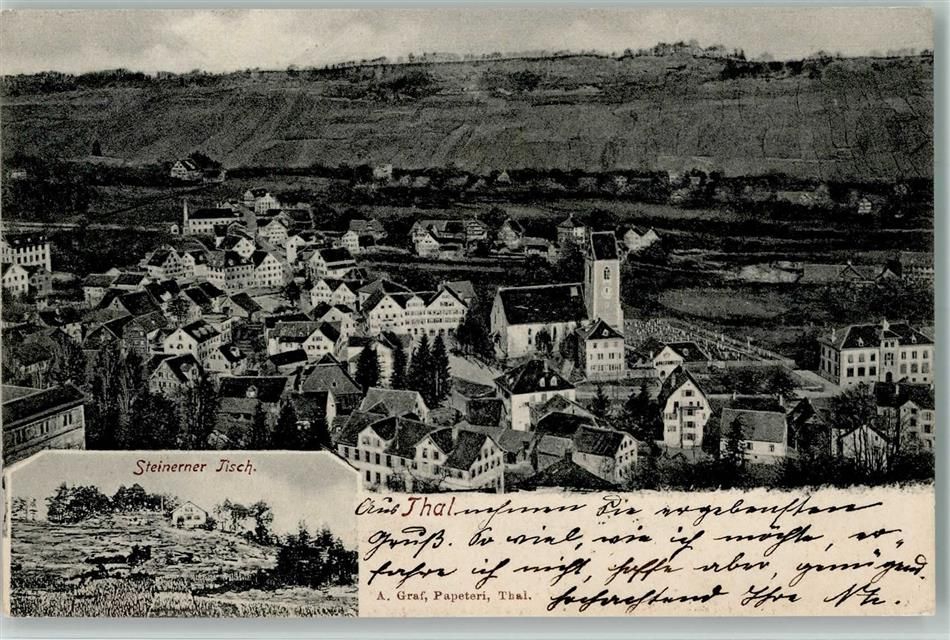 Steinerner Tisch.
Aus Thal nehmen Sie ergebensten
Gruß. So viel, wie ich möchte, er-
fahre ich nicht, hoffe aber, genügend.
A. Graf, Papeteri, Thal.
Hochachtend Ihre